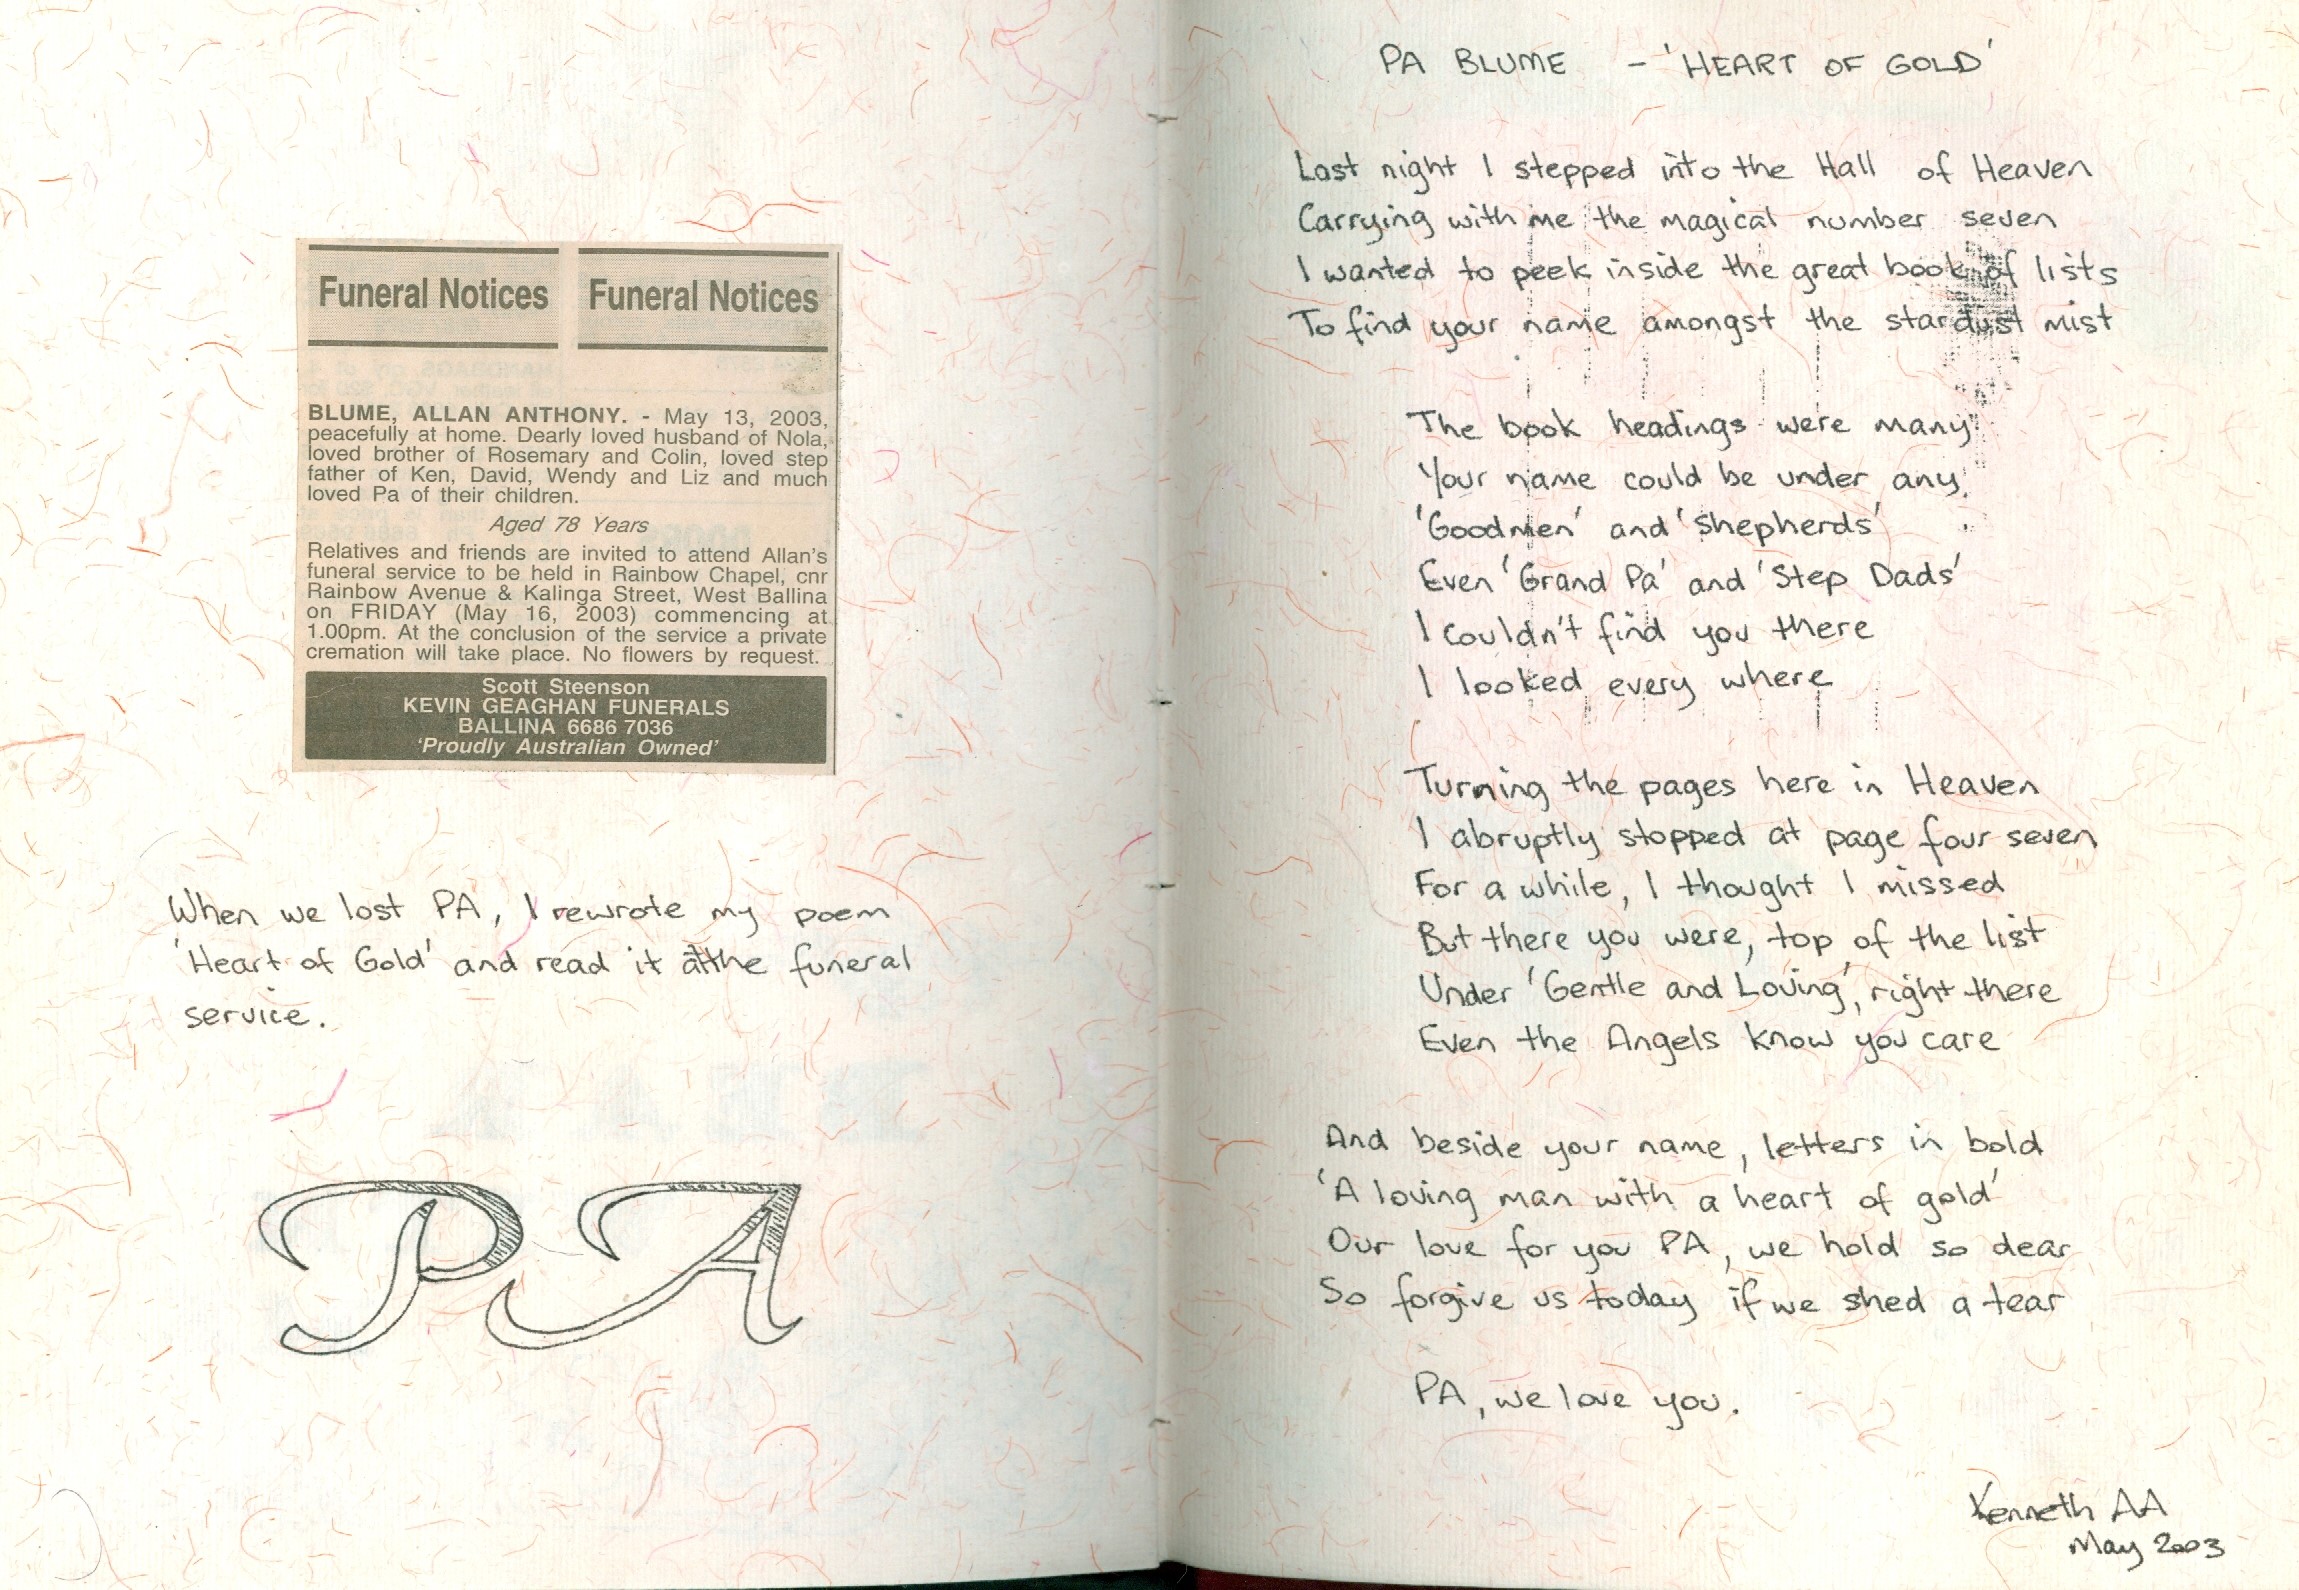 Funeral Notices
Funeral Notices
BLUME, ALLAN ANTHONY. - May 13, 2003,
peacefully at home. Dearly loved husband of Nola,
loved brother of Rosemary and Colin, loved step
father of Ken, David, Wendy and Liz and much
loved Pa of their children.
Aged 78 Years
Relatives and friends are invited to attend Allan's
funeral service to be held in Rainbow Chapel, cnr
Rainbow Avenue & Kalinga Street, West Ballina
on FRIDAY (May 16, 2003) commencing at
1.00pm. At the conclusion of the service a private
cremation will take place. No flowers by request.
Scott Steenson
KEVIN GEAGHAN FUNERALS
BALLINA 6686 7036
'Proudly Australian Owned'
When we lost PA, I rewrote my poem
'Heart of Gold' and read it at the funeral
service.
PA
PA BLUME - 'HEART OF GOLD'
Last night I stepped into the Hall of Heaven
Carrying with me the magical number seven
I wanted to peek inside the great book of lists
To find your name amongst the stardust mist
The book headings were many
Your name could be under any
'Goodmen' and 'Shepherds'
Even 'Grand Pa' and 'Step Dads'
I couldn't find you there
I looked every where
Turning the pages here in Heaven
I abruptly stopped at page four seven
For a while, I thought I missed
But there you were, top of the list
Under 'Gentle and Loving', right there
Even the Angels know you care
And beside your name, letters in bold
'A loving man with a heart of gold'
Our love for you PA, we hold so dear
So forgive us today if we shed a tear
PA, we love you.
Kenneth AA
May 2003